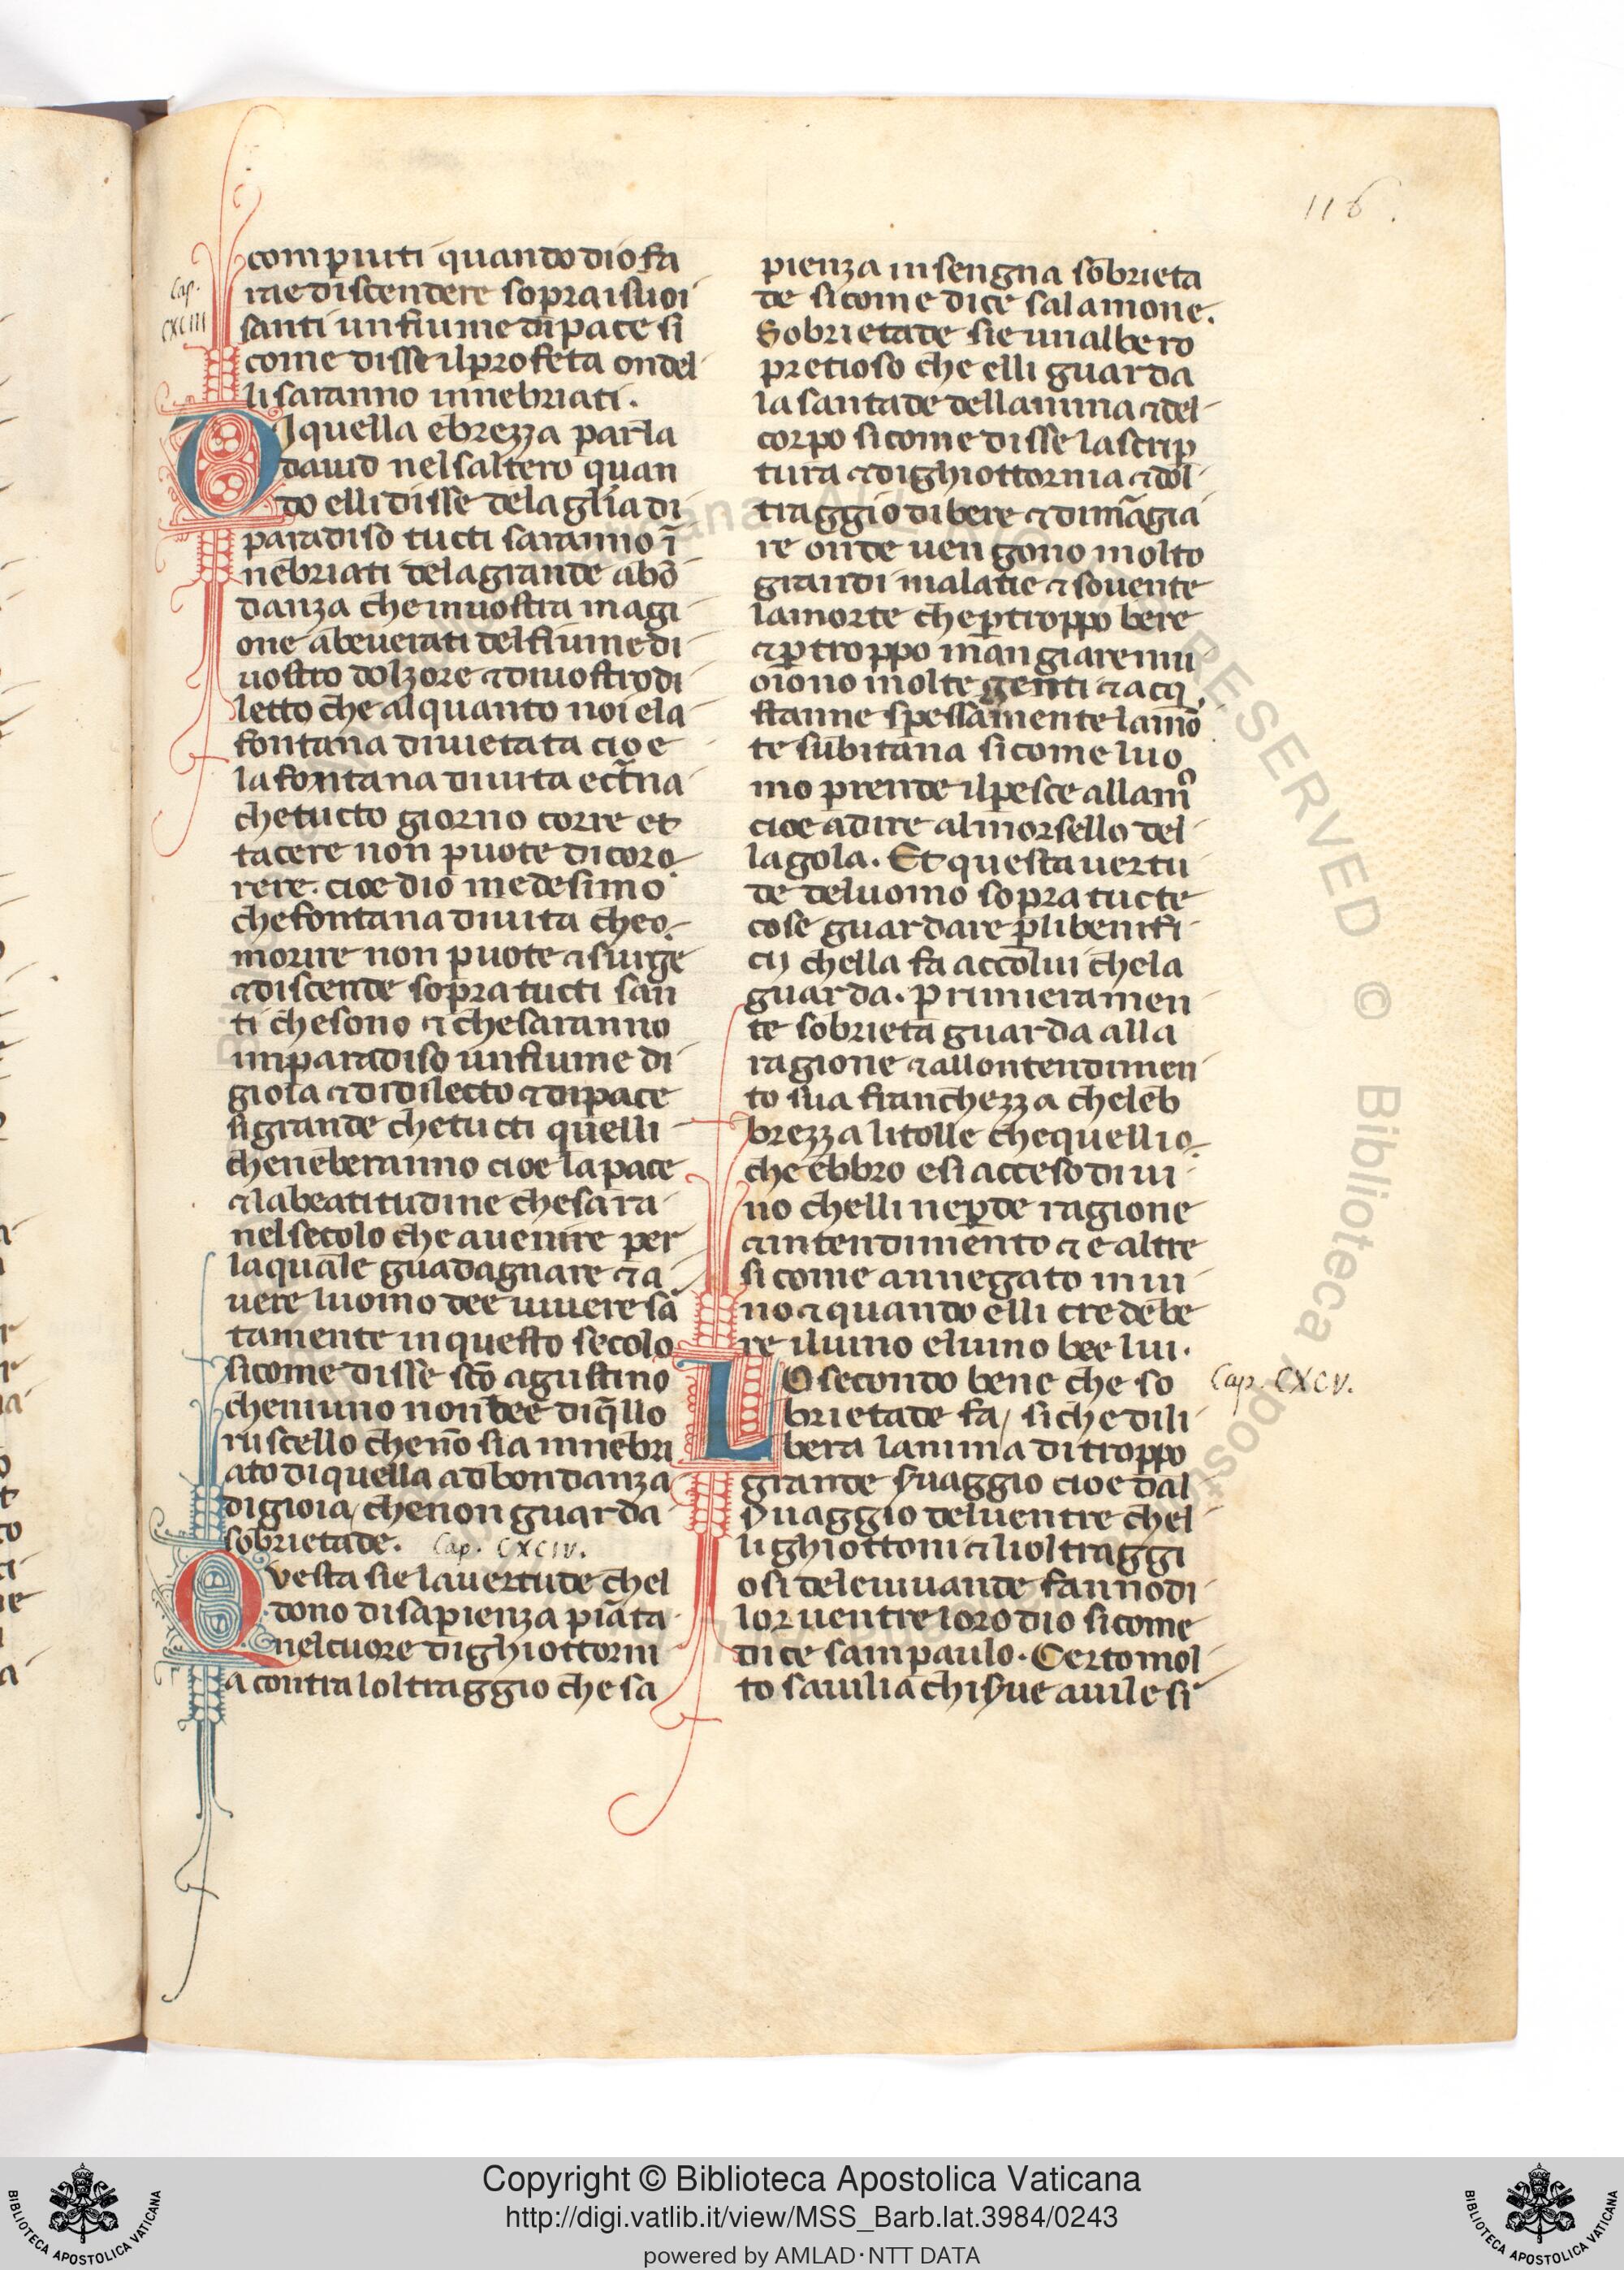 116.
compiuti quando dio fa
rae discendere sopra i suoi
Cap.
CXCIII
santi un fiume di pace si
come disse il profeta ondel
li saranno innebriati.
DI quella ebrezza parla
dauid nel saltero quan
do elli disse de la glia di
paradiso tucti saranno ī
nebriati de la grande abō
danza che in uostra magi
one abeuerati del fiume di
uostro dolzore ⁊ di uostro di
letto che alquanto noi ela
fontana diuietata cio e
la fontana di uita ect̄na
che tucto giorno corre et
tacere non puote di coro
rere. cioe dio medesimo
che fontana di uita che o
morire non puote ⁊ surge
⁊ discende sopra tucti san
ti che sono ⁊ che saranno
im paradiso un fiume di
gioia ⁊ di dilecto ⁊ di pace
si grande che tucti quelli
che ne beranno cioe la pace
⁊ la beatitudine che sara
nel secolo che auenire per
la quale guadagnare ⁊ a
uere luomo dee uiuere sā
tamente in questo secolo
si come disse sc̄o agustino
che niuno non bee di q̄llo
ruscello che nō sia innebri
ato di quella adbondanza
di gioia / che non guarda
sobrietade. Cap. CXCIV.
Questa sie la uertude chel
dono di sapienza piāta
nel cuore di ghiottorni
a contra loltraggio che sa
pienza insengna sobrieta
de si come dice salamone.
Sobrietade sie un albero
pretioso che elli guarda
la santade dellanima ⁊ del
corpo si come disse la scrip
tura ⁊ di ghiottornia ⁊ dol
traggio di bere ⁊ di māgia
re onde uengono molto
grandi malatie ⁊ souente
la morte che p̱ troppo bere
⁊ p̱ troppo mangiare mu
oiono molte genti ⁊ acq
stanne spessamente la mō
te subitana si come luo
mo prende il pesce allamo
cioe a dire al morsello del
la gola. Et questa uertu
de del uomo sopra tucte
cose guardare p̱ li benifi
cij chella fa accolui che la
guarda. Primieramen
te sobrieta guarda alla
ragione ⁊ allontendimen
to sua franchezza che leb
brezza li tolle che quelli o
che ebbro e si acceso di ui
no chelli ne p̱de ragione
⁊ intendimento ⁊ e altre
si come annegato in ui
no ⁊ quando elli crede be
re il uino el uino bee lui.
LO secondo bene che so
Cap. CXCV.
brietade fa / si che dili
bera lanima di troppo
grande s̱uaggio cioe dal
s̱uaggio del uentre chel
li ghiottoni ⁊ li oltraggi
osi dele uiuande fanno di
lor uentre loro dio si come
dice sam paulo. Certo mol
to sauilia chi s̱ue a uile si
Copyright © Biblioteca Apostolica Vaticana
http://digi.vatlib.it/view/MSS_Barb.lat.3984/0243
powered by AMLAD·NTT DATA
BIBLIOTECA APOSTOLICA VATICANA
BIBLIOTECA APOSTOLICA VATICANA